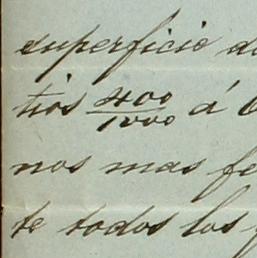 superficie de
tros 400/1000 á
nos mas fe
te todos los